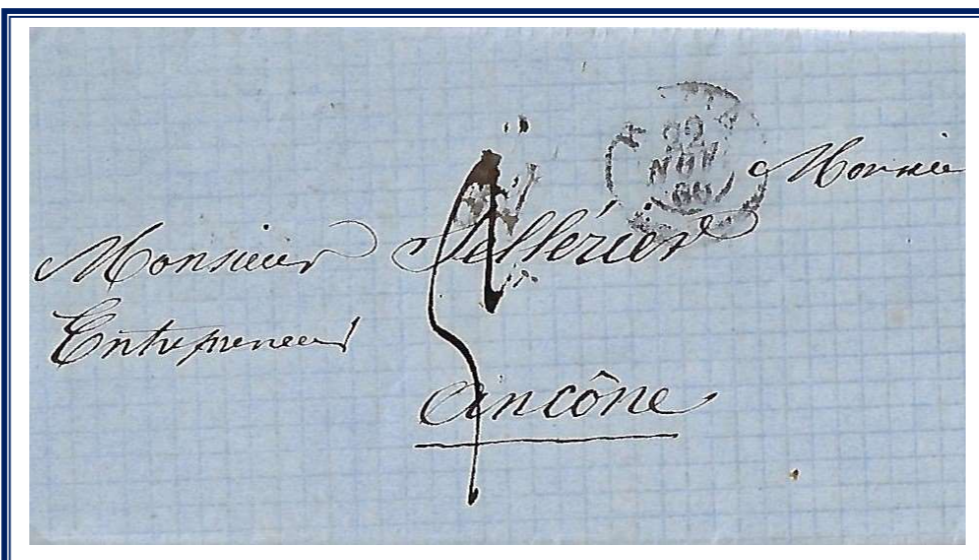 22
NOV
60
Monsieur Sellérier Monsieur
Entrepreneur
Ancône